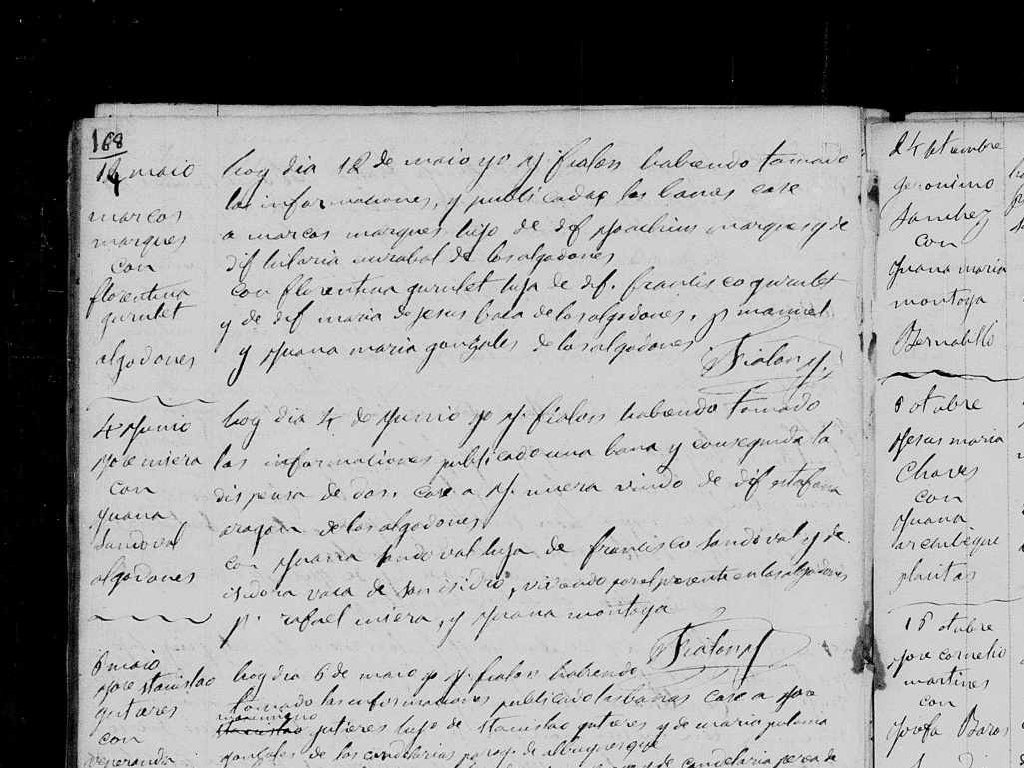 168
12 maio
marcos
marques
con
florentina
gurulet
algodones
hoy dia 12 de maio yo J fialon habiendo tomado
las informaciones, y publicadas las banas case
a marcos marques hijo de dif Joachim marques y de
dif hilaria mirabal de los algodones
con florentina gurulet hija de dif. francisco gurulet
y de dif maria de jesus baca de los algodones. p manuel
y Juana maria gonzales de los algodones
Fialon J.
4 Junio
Jose miera
con
Juana
Sandoval
algodones
hoy dia 4 de Junio yo J. fialon habiendo tomado
las informaciones publicado una bana y conseguida la
dispensa de dos. case a J. miera viudo de dif estafana
aragon de los algodones
con Juana Sandoval hija de francisco Sandoval y de
isidora vaca de san isidro, viviendo por el presente en los algodones
p. rafael miera, y Juana montoya
Fialon J
6 maio
Jose stanislao
gutieres
con
hoy dia 6 de maio yo J fialon habiendo
tomado las informaciones publicado las banas case a Jose
stanislao gutieres hijo de stanislao gutieres y de maria paloma
gonzales de los candelarias paraje de albuquerque
de candelaria
24 septiembre
Jeronimo
Sanchez
con
Juana maria
montoya
Bernalillo
8 otubre
Jesus maria
Chaves
con
Juana
archibeque
placitas
15 otubre
Jose cornelio
martines
con
Josefa Baros